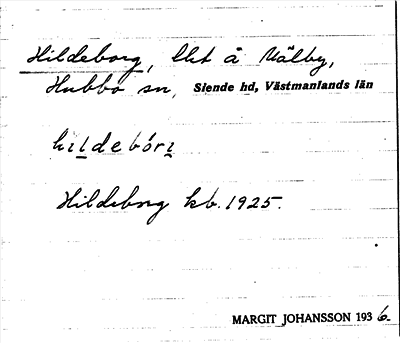 Hildeborg, lht å Mälby,
Hubbo sn, Siende hd, Västmanlands län
hildebórj
Hildeborg kb. 1925.
MARGIT JOHANSSON 1936.